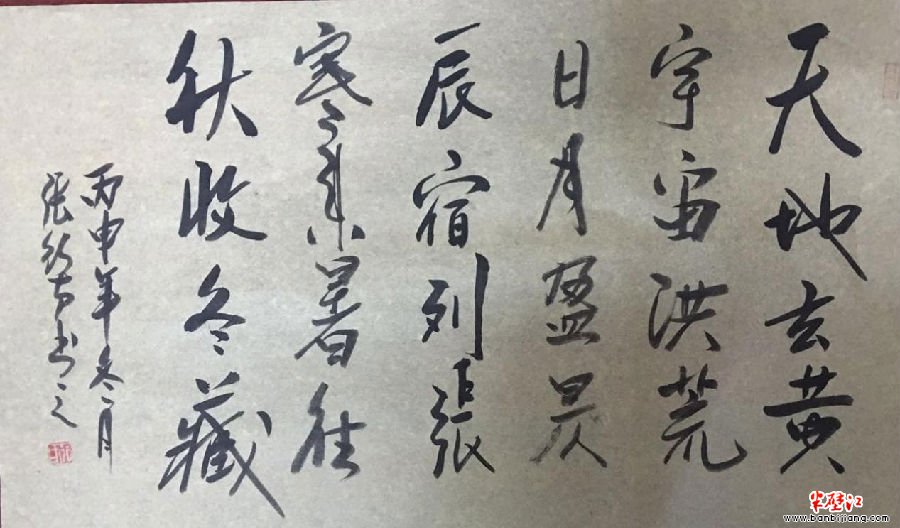 天地玄黄
宇宙洪荒
日月盈昃
辰宿列張
寒来暑往
秋收冬藏
丙申年冬月
张
书之
半壁江
www.banbijiang.com